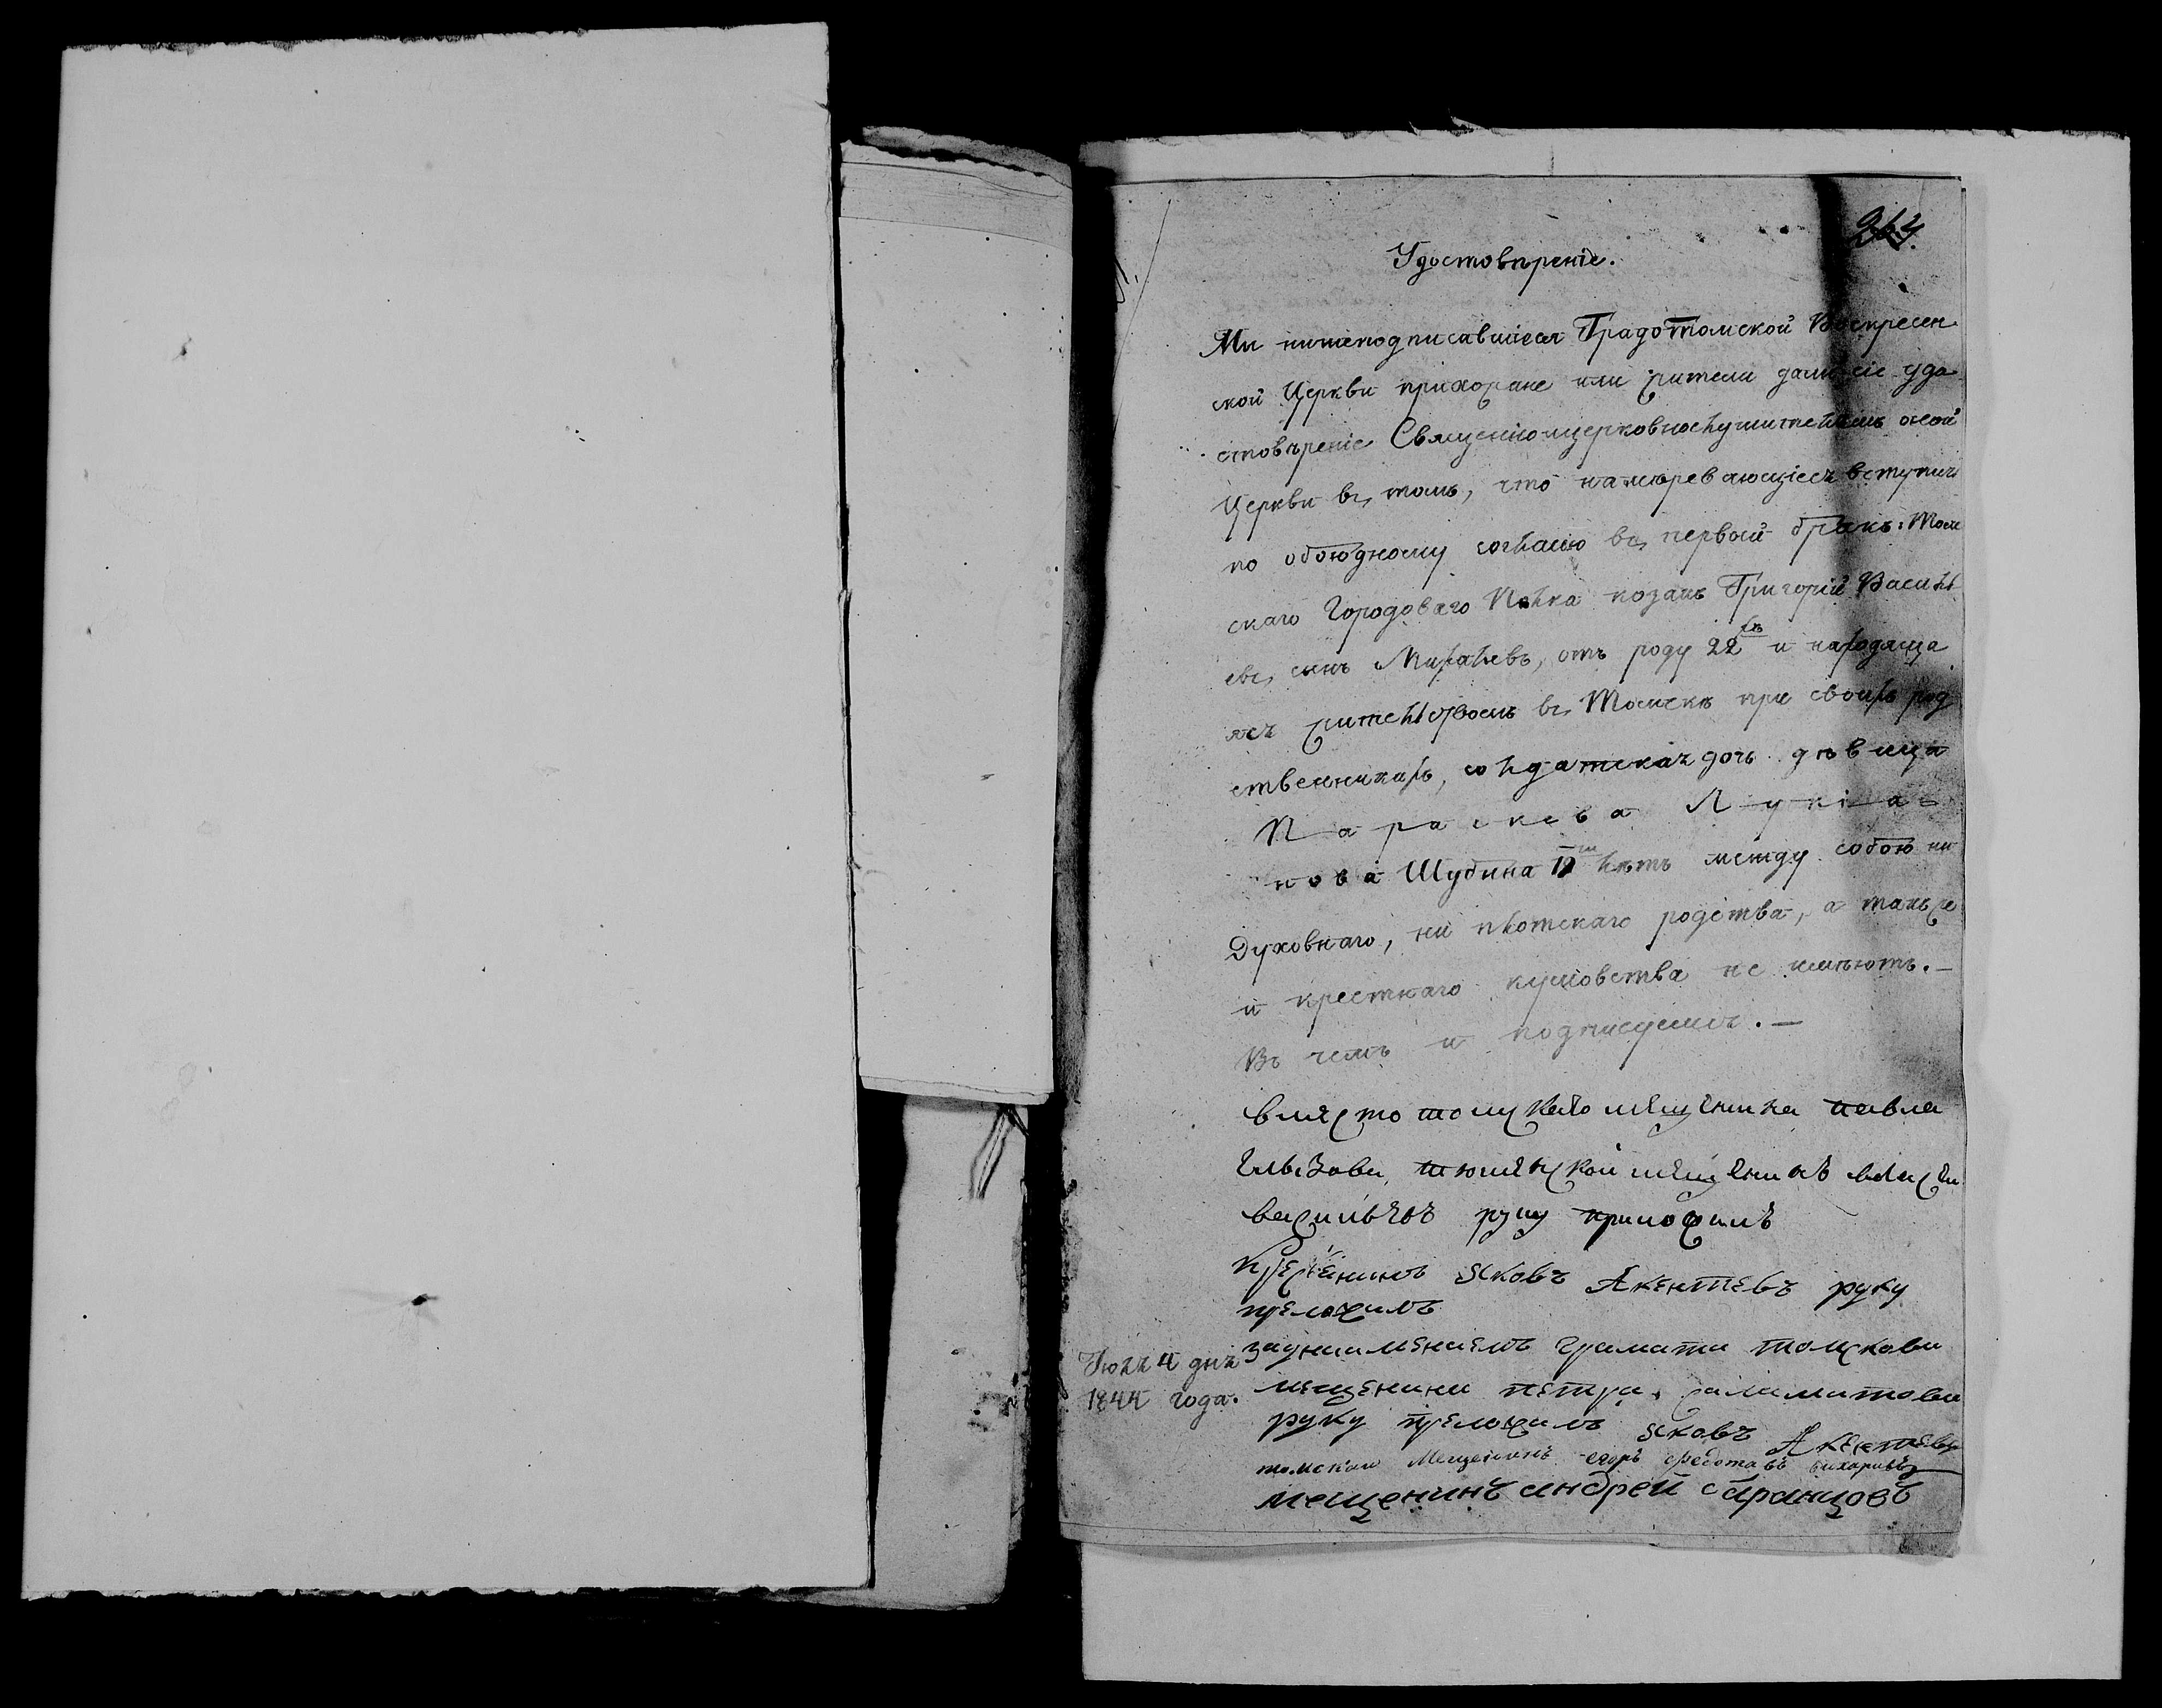 Удостовѣреніе.
Мы нижеподписавшіеся Градотомской Воскресен
ской Церкви прихожане или жители дали сіе удо
стовѣреніе Священноцерковнослужителямъ оной
Церкви въ томъ, что намѣревающіеся вступить
по обоюдному согласію въ первой бракъ: Том
скаго Городоваго Полка козакъ Григорій Василь
евъ сынъ, отъ роду 22 и находяща
яся жительствомъ въ Томскѣ при своихъ род
ственникахъ, солдатская дочь дѣвица
Параскева Лукіа-
нова Шубина лѣтъ между собою ни
Духовнаго, ни плотскаго родства, а также
и крестнаго кумовства не имѣютъ.—
Въ чемъ и подписуемся.—
вместо томскаго мещенина павла
тюменской мещенинъ
васильевъ руку приложилъ
Яковъ Акентіевъ руку
преложилъ
Іюля 4 дня
1844 года.
занеименіемъ грамати томскова
мещенина петра
руку преложилъ Яковъ Акентіевъ
томскай Мещененъ егоръ федотавъ
мещенинъ андрей